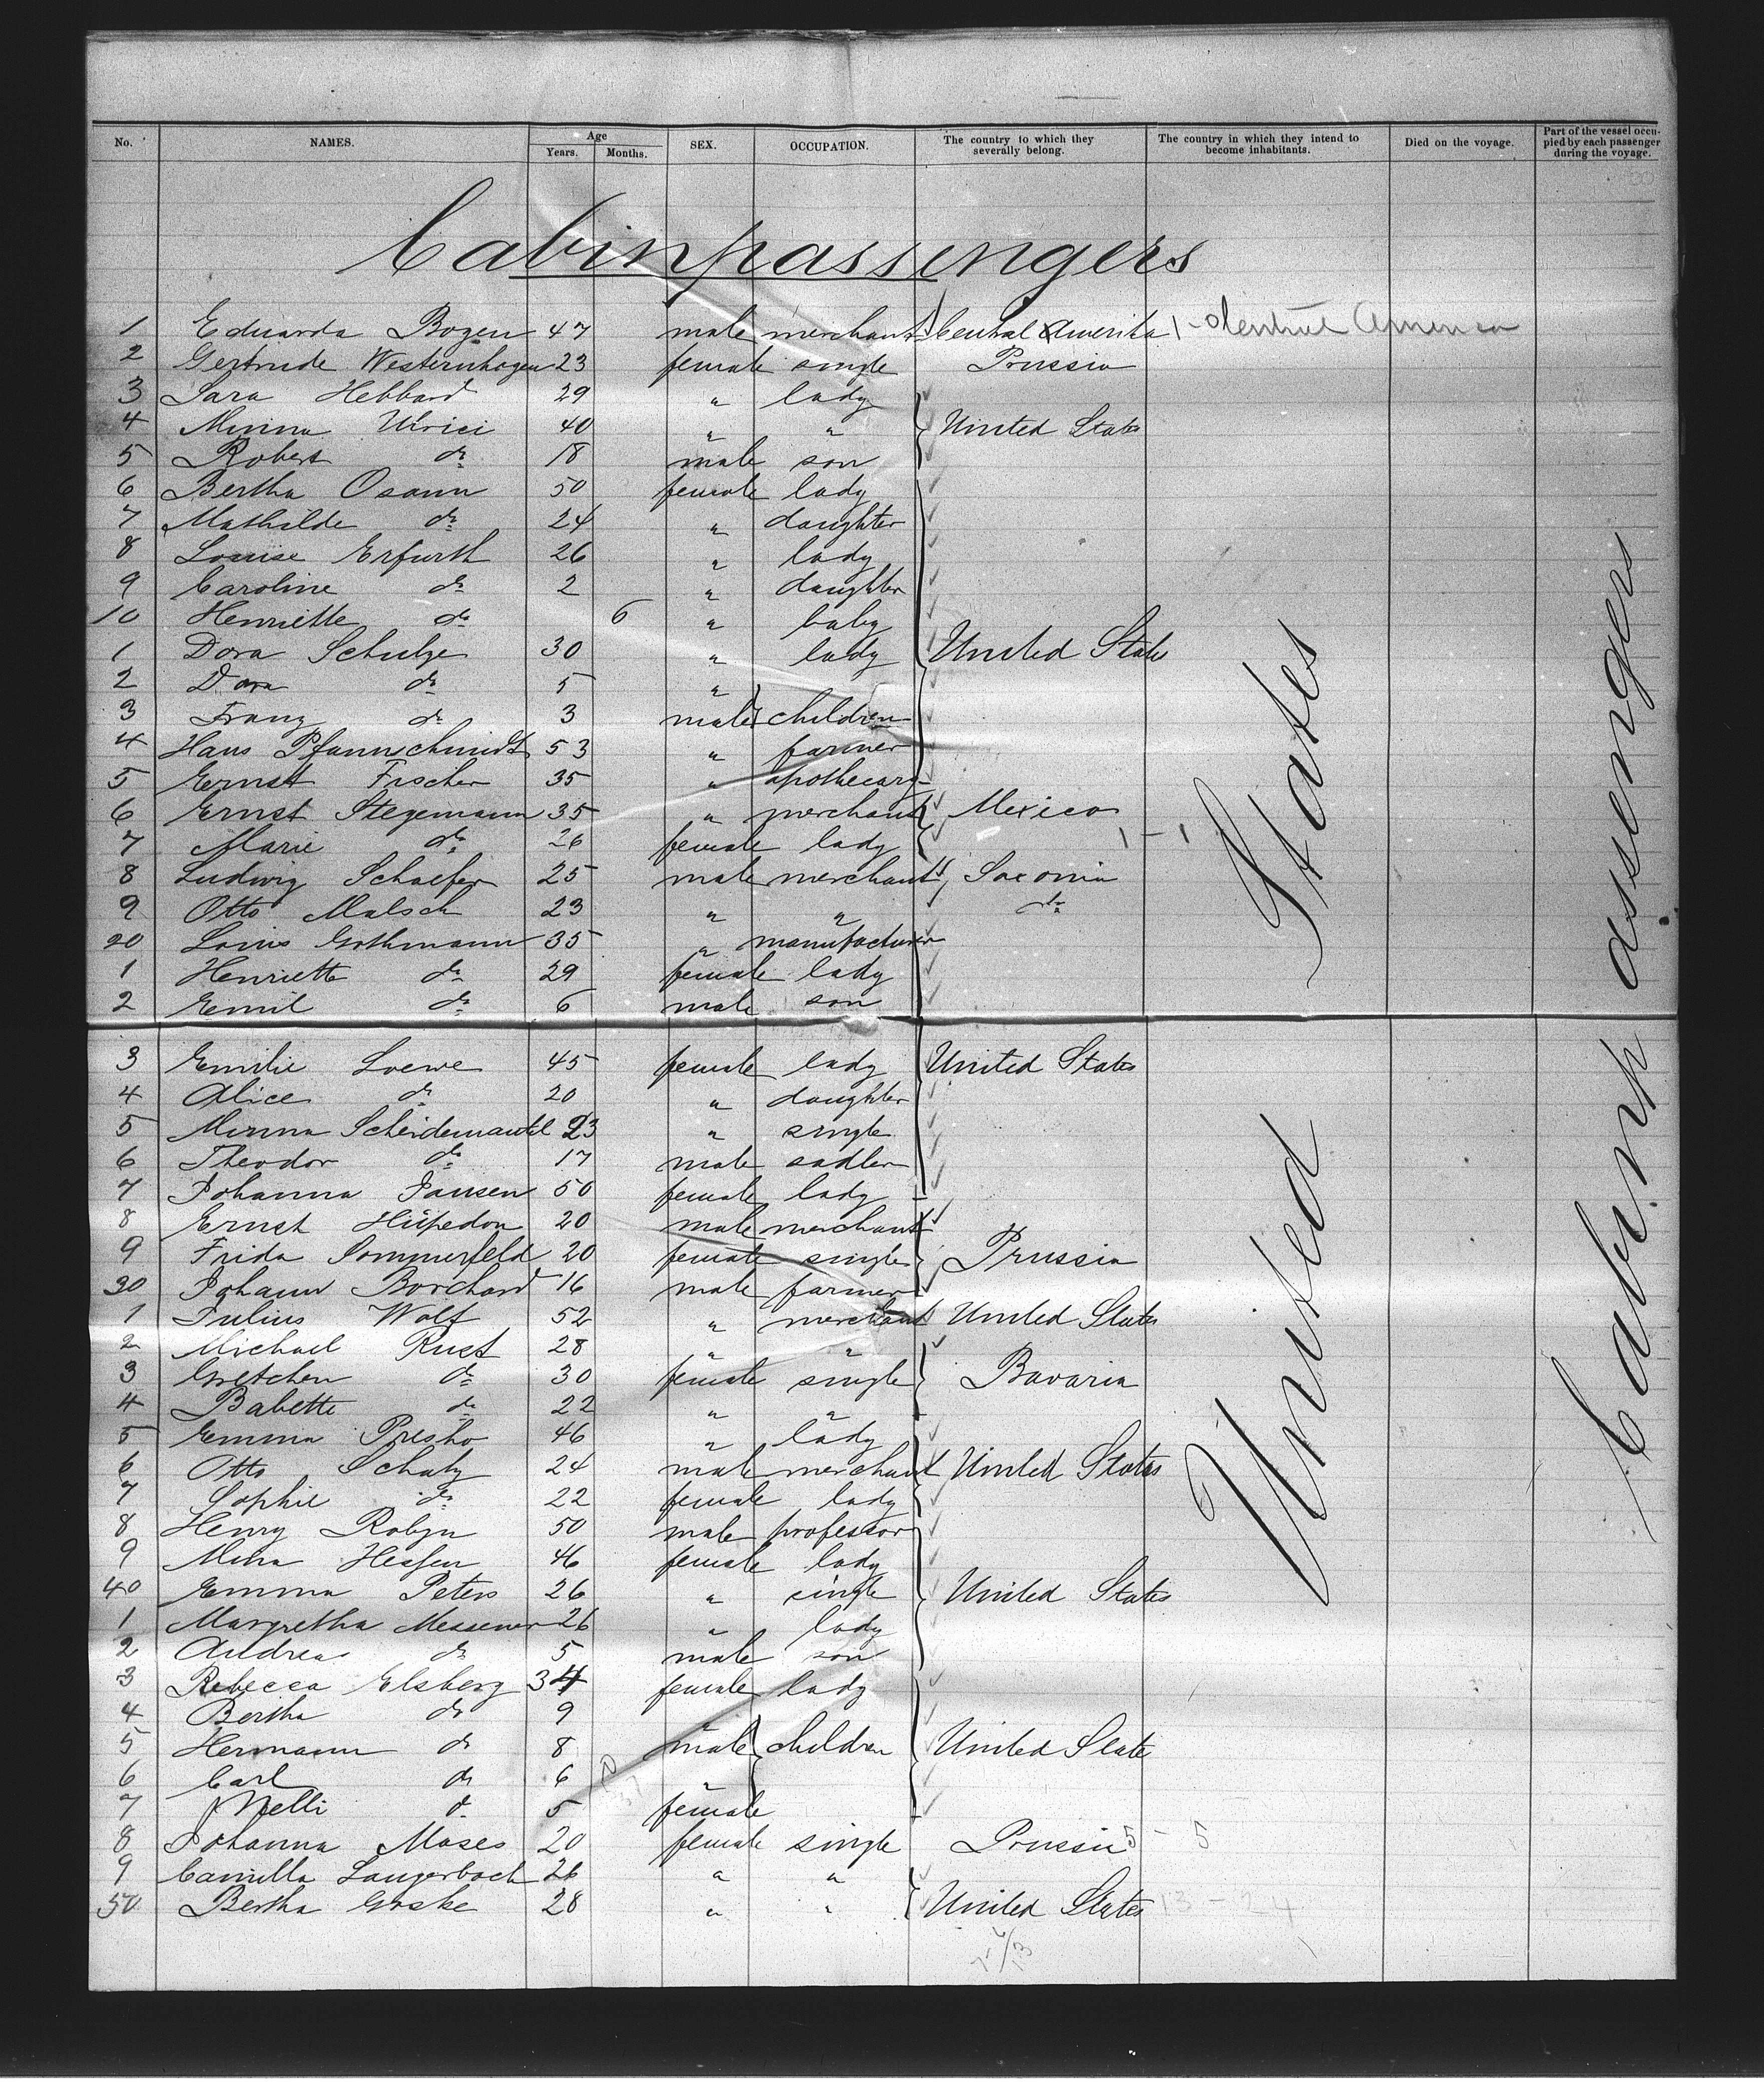 No. NAMES. Age SEX. OCCUPATION. The country to which they severally belong. The country in which they intend to become inhabitants. Died on the voyage. Part of the vessel occupied by each passenger during the voyage.
Years. Months.
Cabinpassengers
1 Eduardo Bozen 47 male merchant Central Amerika 1 - Central America
2 Gertrude Westernhagen 23 female single Prussia
3 Sara Hebbard 29 " lady
4 Minna Ulrici 40 " " United States
5 Robert do 18 male son
6 Bertha Osann 50 female lady
7 Mathilde do 24 " daughter
8 Louise Erfurth 26 " lady
9 Caroline do 2 " daughter
10 Henriette do 6 " baby
1 Dora Schulze 30 " lady United States
2 Dora do 5 "
3 Franz do 3 male children
4 Hans Pfannschmidt 53 " farmer
5 Ernst Fischer 35 " apothecary
6 Ernst Stegemann 35 " merchant Mexico
7 Marie do 26 female lady 1 - 1
8 Ludwig Schaefer 25 male merchant Saxonia
9 Otto Malsch 23 " " do
20 Louis Gothmann 35 " manufacturer
1 Henriette do 29 female lady
2 Emil do 6 male son
3 Emilie Loewe 45 female lady United States
4 Alice do 20 " daughter
5 Minna Scheidemantel 23 " single
6 Theodor do 17 male sadler
7 Johanna Jansen 50 female lady
8 Ernst Hüpedon 20 male merchant
9 Frida Sommerfeld 20 female single Prussia
30 Johann Borchard 16 male farmer
1 Julius Wolf 52 " merchant United States
2 Michael Rust 28 " "
3 Gretchen do 30 female single Bavaria
4 Babette do 22 " "
5 Emma Presho 46 " lady
6 Otto Schatz 24 male merchant United States
7 Sophie do 22 female lady
8 Henry Robyn 50 male professor
9 Mina Hessen 46 female lady
40 Emma Peters 26 " single United States
1 Margretha Messener 26 " lady
2 Andreas do 5 male son
3 Rebecca Elsberg 34 female lady
4 Bertha do 9 "
5 Hermann do 8 male children United State
6 Carl do 6 "
7 Nelli do 5 female
8 Johanna Moses 20 female single Prussia 5 - 5
9 Camilla Langerbach 26 " "
50 Bertha Goske 28 " " United States 13 - 24
United States
Cabin passengers